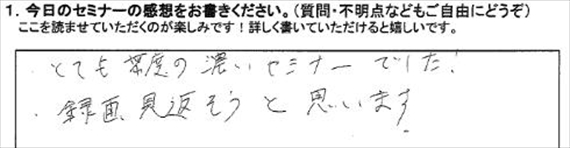 1. 今日のセミナーの感想をお書きください。(質問・不明点などもご自由にどうぞ)
ここを読ませていただくのが楽しみです!詳しく書いていただけると嬉しいです。
・とても密度の濃いセミナーでした!
・録画、見返そうと思います